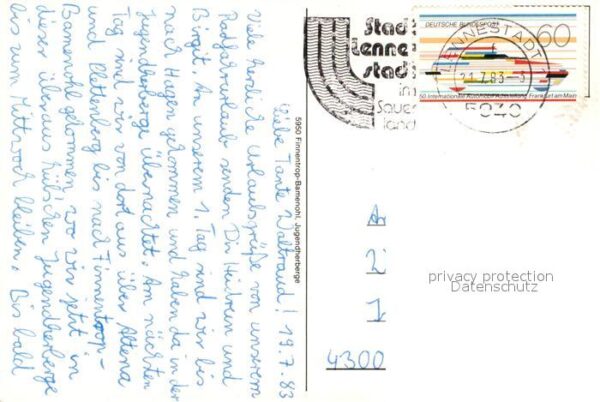 Liebe Tante Waltraud! 19.7.83
Viele herzliche Urlaubsgrüße von unserem
Radfahrurlaub senden Dir Hubreus und
Birgit. An unserem 1. Tag sind wir bis
nach Hagen gekommen und haben da in der
Jugendherberge übernachtet. Am nächsten
Tag sind wir von dort aus über Altena
und Plettenberg bis nach Finnentrop-
Bamenohl gekommen, wo wir jetzt in
dieser überaus hübschen Jugendherberge
bis zum Mittwoch bleiben. Bis bald
5950 Finnentrop-Bamenohl, Jugendherberge
Stadt
Lenne
stadt
im
Sauer
land
DEUTSCHE BUNDESPOST
60
50. Internationale Automobil-Ausstellung Frankfurt am Main
LENNESTADT 1
21.7.83-3
5940
privacy protection
Datenschutz
4300